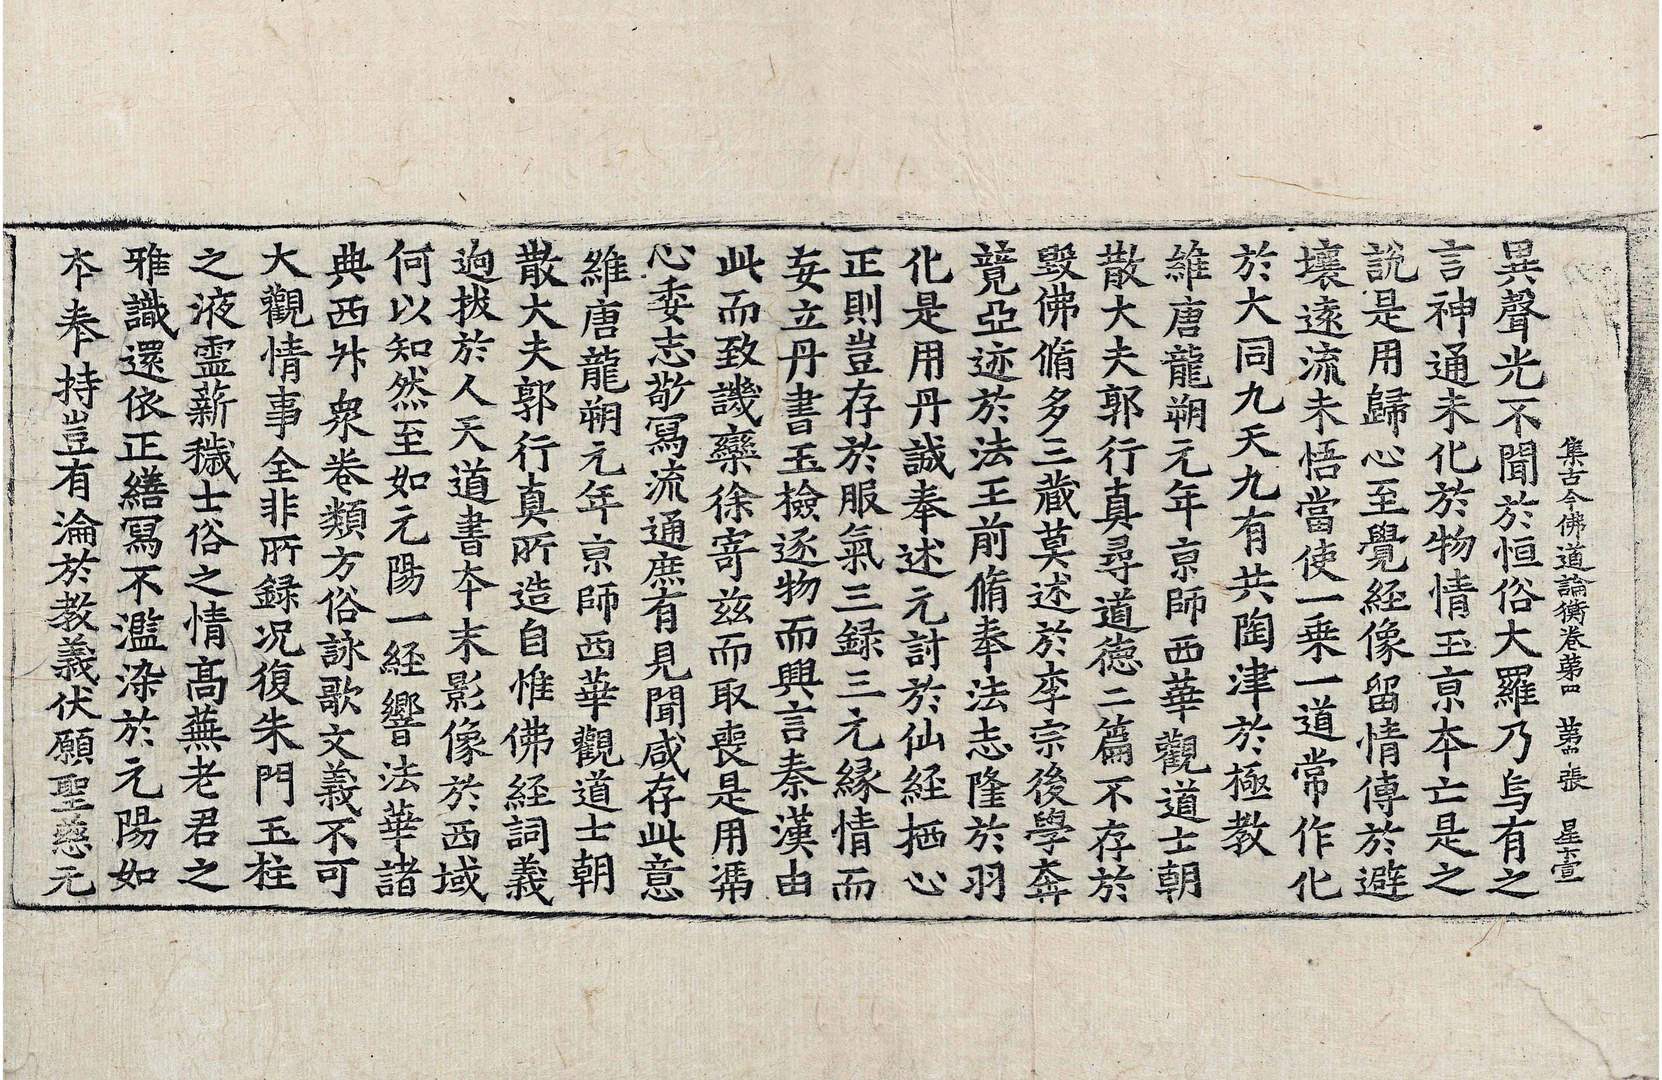 集古今佛道論衡卷第四 第四張 星 壹
異聲光不聞於恒俗大羅乃烏有之
言神通未化於物情玉京本亡是之
說是用歸心至覺経像留情傳於避
壤遠流未悟當使一乗一道常作化
於大同九天九有共陶津於極教
維唐龍朔元年京師西華觀道士朝
散大夫郭行真尋道徳二篇不存於
毀佛脩多三藏莫述於李宗後學奔
競亞迹於法王前脩奉法志隆於羽
化是用丹誠奉述元討於仙経栖心
正則豈存於服氣三録三元縁情而
妄立丹書玉檢逐物而興言秦漢由
此而致譏欒徐寄兹而取喪是用馮
心委志敬寫流通庶有見聞咸存此意
維唐龍朔元年京師西華觀道士朝
散大夫郭行真所造自惟佛経詞義
逈拔於人天道書本末影像於西域
何以知然至如元陽一経響法華諸
典西昇衆卷類方俗詠歌文義不可
大觀情事全非所録况復朱門玉柱
之液霊薪穢士俗之情髙蕪老君之
雅識還依正繕寫不濫染於元陽如
本奉持豈有淪於教義伏願聖慈元